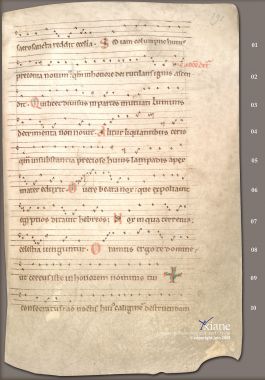 sacrosancta reddit ecclesia. Sed iam columpne huius
preconia novimus. quam in honore dei rutilans ignis accen
dit. Qui licet divisus in partes mutuati luminis
detrimenta non novit. Alitur liquantibus ceris
quas in substantiam preciose huius lampadis apes
mater eduxit. O vere beata nox. que expoliavit
egyptios ditavit hebreos. Nox in qua terrenis
celestia iunguntur. Oramus ergo te domine
ut cereus iste in honorem nominis tui
consecratus ad noctis huius caliginem destruendam
01
02
03
04
05
06
07
08
09
10